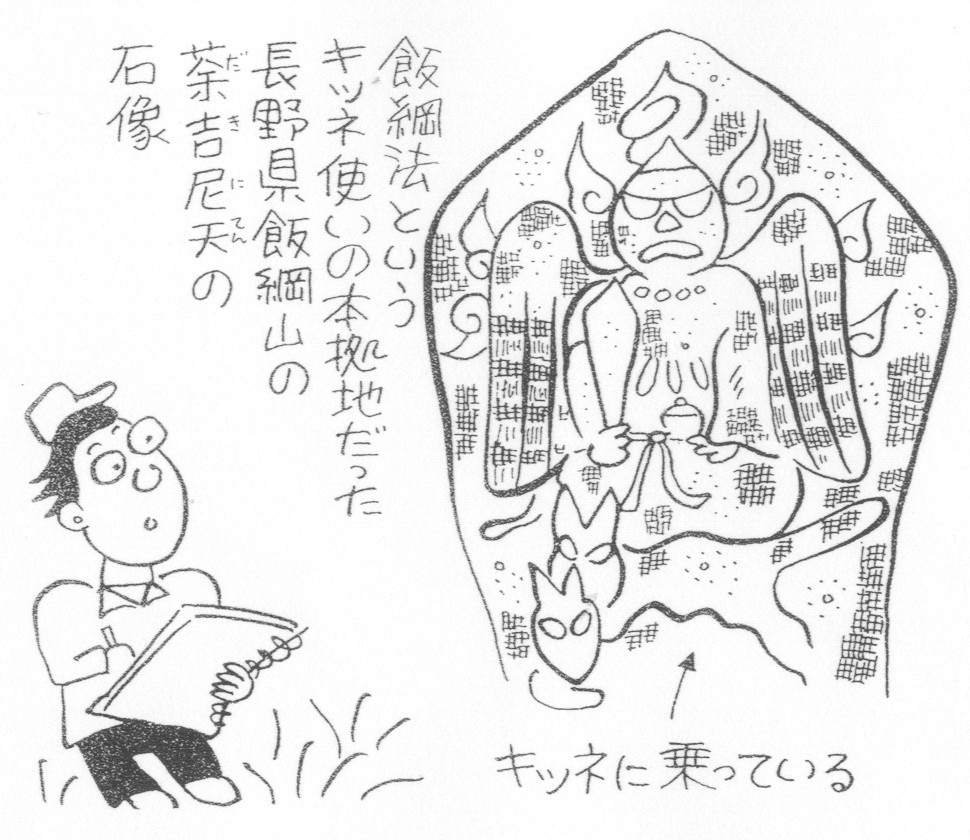 飯綱法という
キツネ使いの本拠地だった
長野県飯綱山の
荼吉尼天の
だきにてん
石像
キツネに乗っている